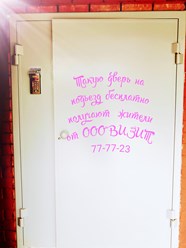 Такую дверь на
подъезд бесплатно
получают жители
от ООО-ВИЗИТ
77-77-23